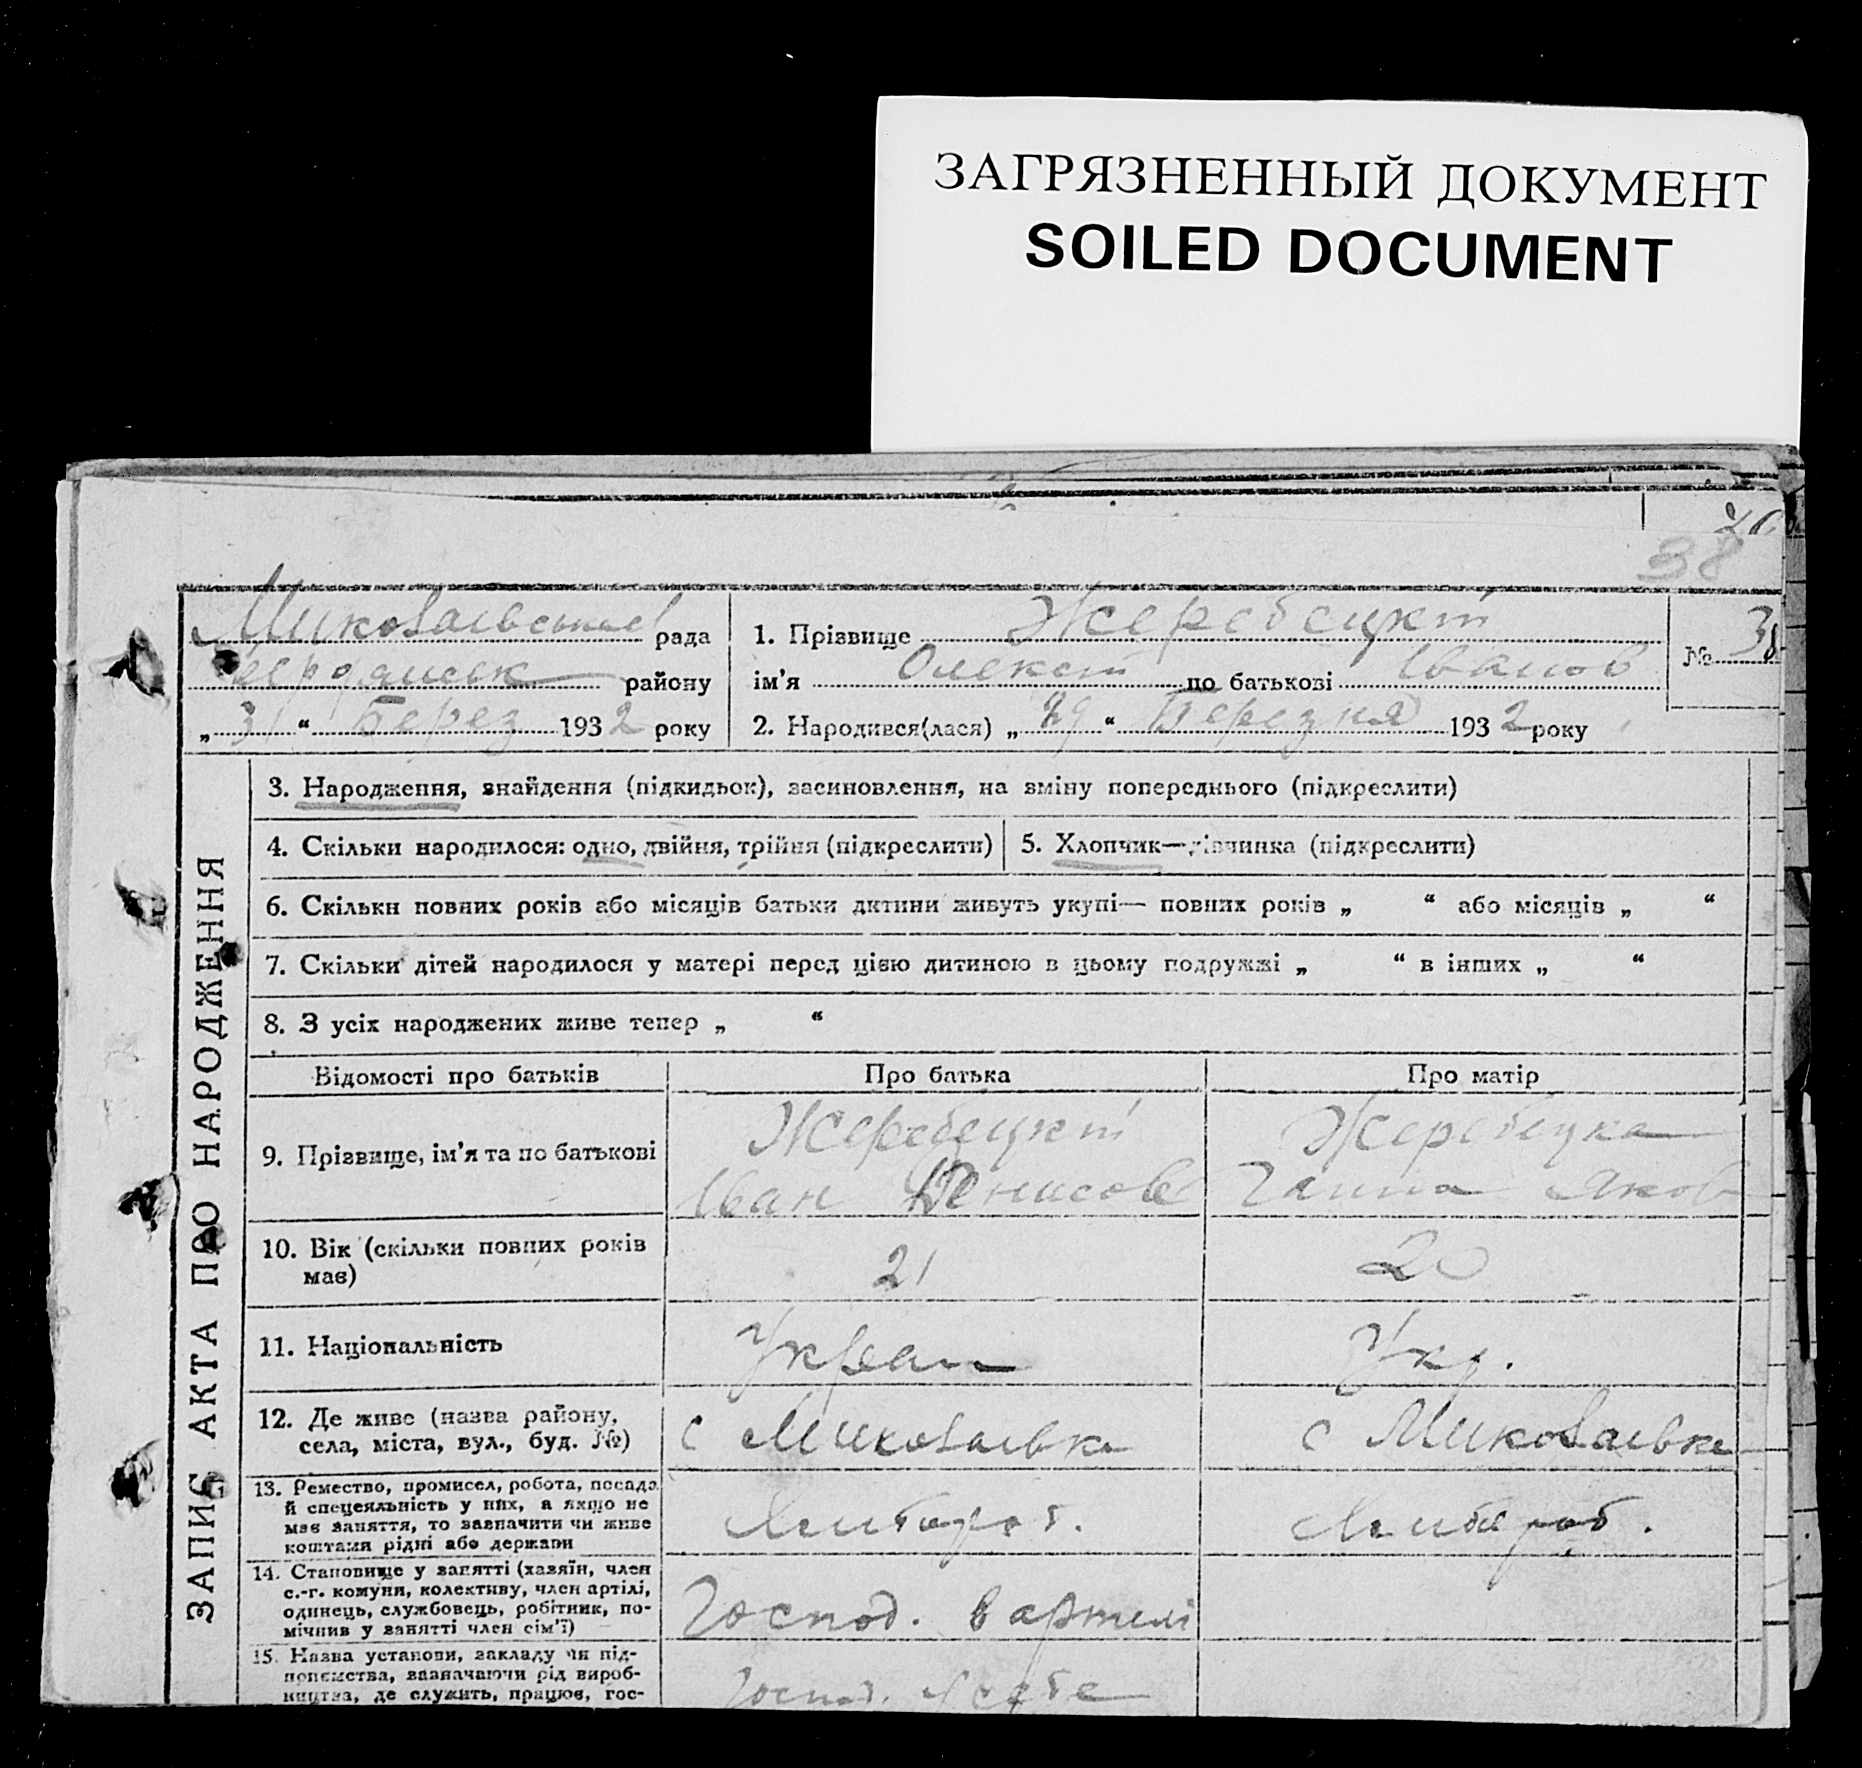 ЗАГРЯЗНЕННЫЙ ДОКУМЕНТ
SOILED DOCUMENT
38
Миколаївська рада
Бердянськ району
„ 31 “ Берез 1932 року
1. Прізвище Жеребецкий
ім'я Олексій по батькові Іванов
2. Народився(лася) „ 29 “ Березня 1932 року
№ 38
ЗАПИС АКТА ПРО НАРОДЖЕННЯ
3. Народження, знайдення (підкидьок), засиновлення, на зміну попереднього (підкреслити)
4. Скільки народилося: одно, двійня, трійня (підкреслити)
5. Хлопчик—дівчинка (підкреслити)
6. Скільки повних років або місяців батьки дитини живуть укупі— повних років „ “ або місяців „ “
7. Скільки дітей народилося у матері перед цією дитиною в цьому подружжі „ “ в інших „ “
8. З усіх народжених живе тепер „ “
Відомості про батьків Про батька Про матір
9. Прізвище, ім'я та по батькові
Жеребецкий
Іван Денисов
Жеребецка
Ганна Яков
10. Вік (скільки повних років
має)
21
20
11. Національність
Украин
Укр.
12. Де живе (назва району,
села, міста, вул., буд. №)
с Миколаївка
с Миколаївка
13. Ремество, промисел, робота, посада
й спецеяльність у них, а якщо не
має заняття, то зазначити чи живе
коштами рідні або держави
Хлибороб.
Хлибороб.
14. Становище у занятті (хазяїн, член
с.-г. комуни, колективу, член артілі,
одинець, службовець, робітник, по-
мічник у занятті член сім'ї)
Господ. в артелі
15. Назва установи, закладу чи під-
приємства, зазначаючи рід вироб-
ництва, де служить, працює, гос-
Господ. у себе